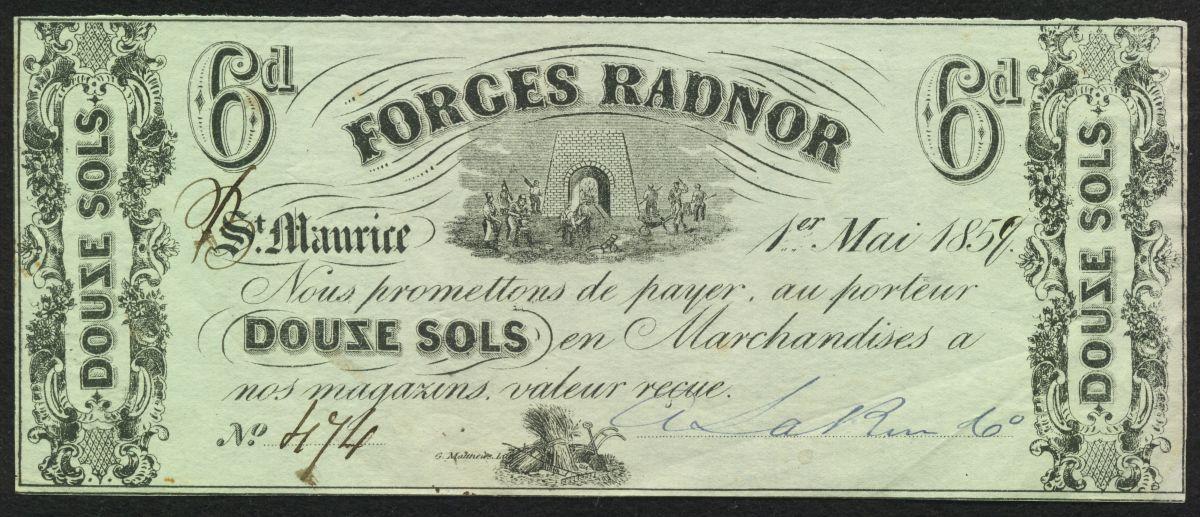 6d FORGES RADNOR 6d
DOUZE SOLS
DOUZE SOLS
B
St. Maurice 1er Mai 1859.
Nous promettons de payer, au porteur
DOUZE SOLS en Marchandises a
nos magazins, valeur reçue.
No 474
G. Matthews,